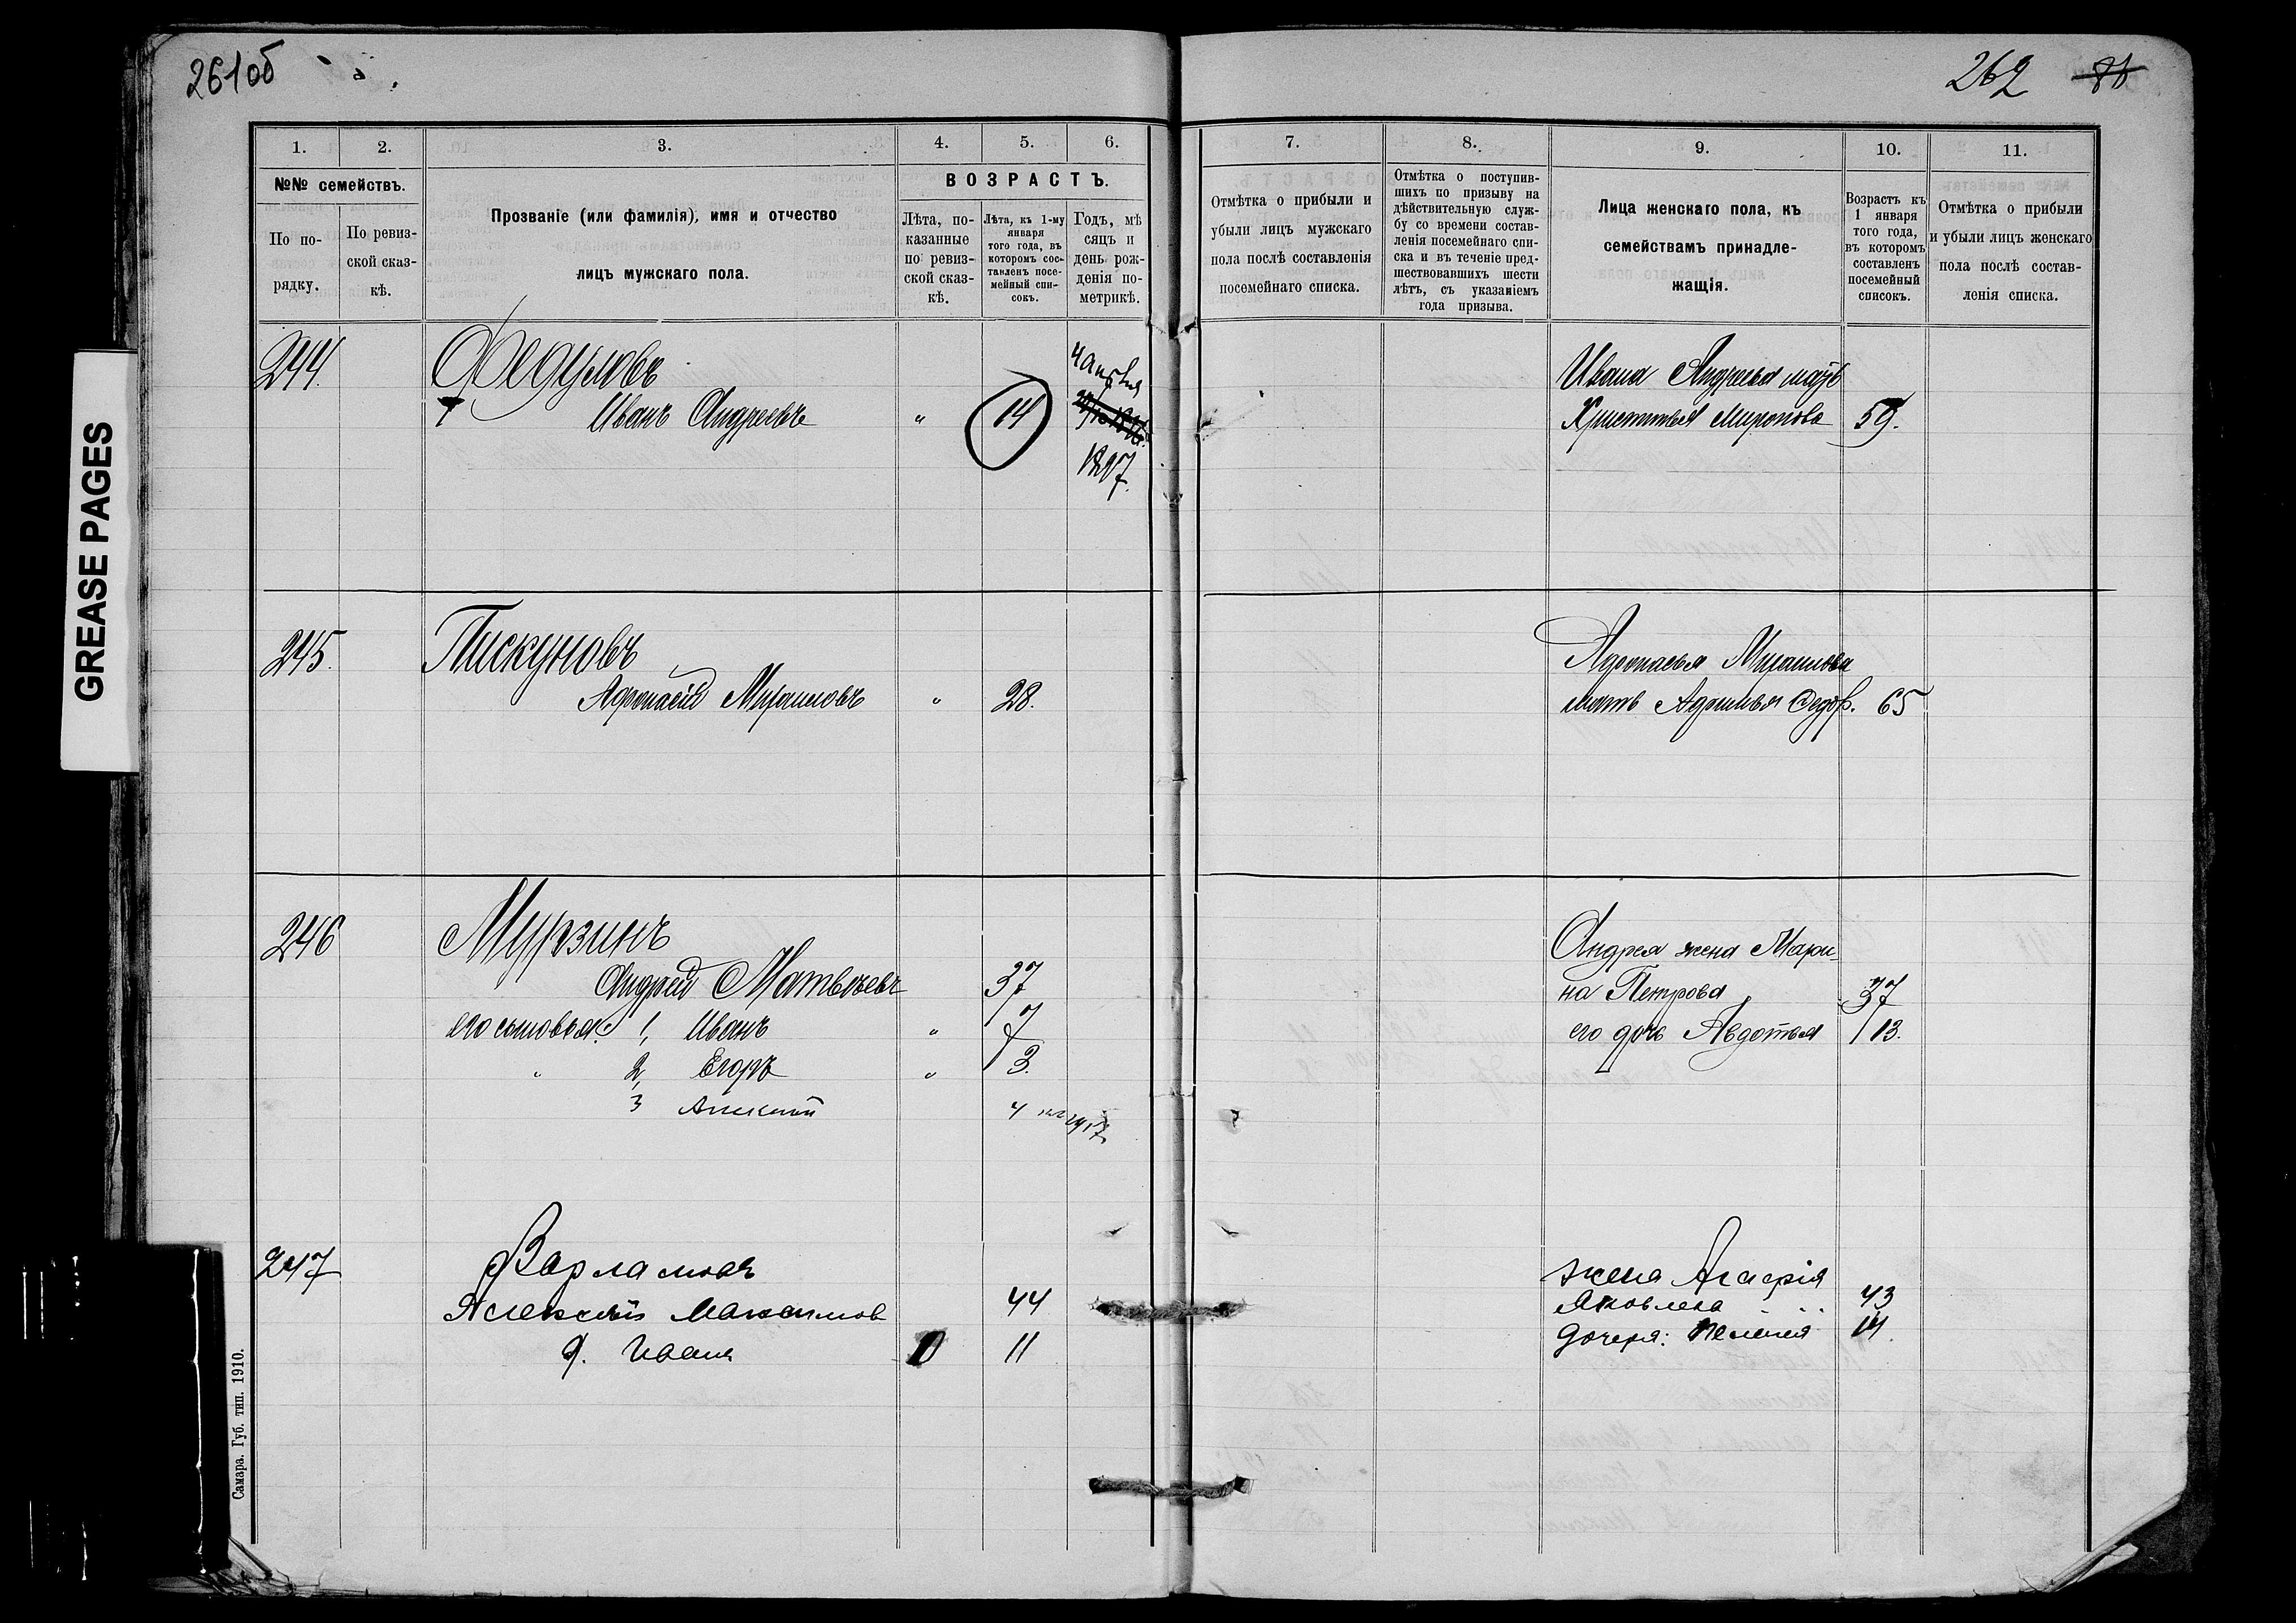 261об
262 86
GREASE PAGES
1. 2. 3. 4. 5. 6.
№№ семействъ.
По по-
рядку.
По ревиз-
ской сказ-
кѣ.
Прозваніе (или фамилія), имя и отчество
лицъ мужскаго пола.
ВОЗРАСТЪ.
Лѣта, по-
казанные
по ревиз-
ской сказ-
кѣ.
Лѣта, къ 1-му
января
того года, въ
которомъ сос-
тавленъ посе-
мейный спи-
сокъ.
Годъ, мѣ
сяцъ и
день рож-
денія по
метрикѣ.
7. 8. 9. 10. 11.
Отмѣтка о прибыли и
убыли лицъ мужскаго
пола послѣ составленія
посемейнаго списка.
Отмѣтка о поступив-
шихъ по призыву на
дѣйствительную служ-
бу со времени состав-
ленія посемейнаго спи-
ска и въ теченіе пред-
шествовавшихъ шести
лѣтъ, съ указаніемъ
года призыва.
Лица женскаго пола, къ
семействамъ принадле-
жащія.
Возрастъ къ
1 января
того года,
въ которомъ
составленъ
посемейный
списокъ.
Отмѣтка о прибыли
и убыли лицъ женскаго
пола послѣ состав-
ленія списка.
244. Федуловъ
Иванъ Андреевъ " 14
4 апрѣля
1897
Ивана Андреева мать
Христинья Миронова 59.
245. Пискуновъ
Афонасій Михаиловъ " 28.
Афонасья Михаилова
мать Федор. 65
246 Мурзинъ
Андрей Матвѣевъ 37
его сыновья: 1, Иванъ " 7
" 2, Егоръ " 3.
3 Алексей 4
Андрея жена Мари-
на Петрова 37
его дочь Авдотья 13.
247 Варламовъ
Алексѣй Максимов 44
Иванъ 11
жена Агафія
Яковлева 43
дочеря: Пелагея 14.
Самара. Губ. тип. 1910.